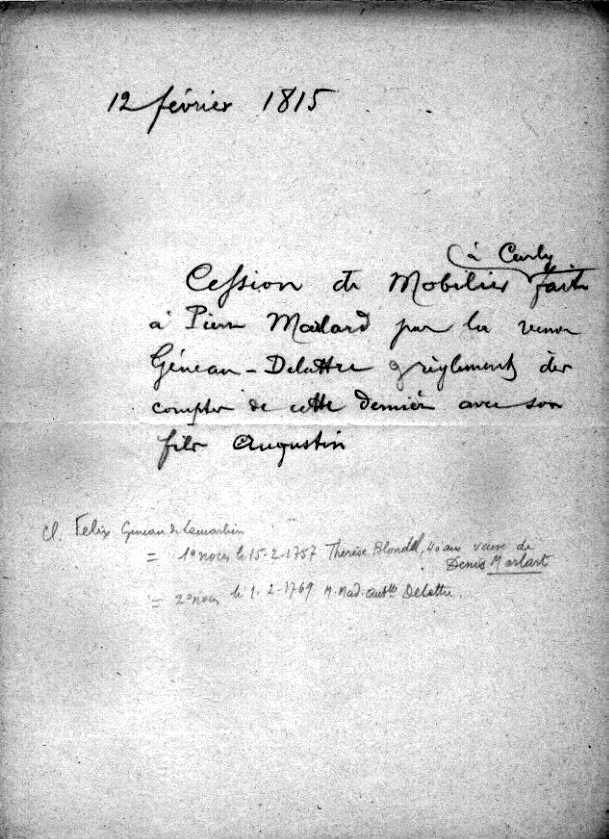 12 février 1815
à Carly
Cession de Mobilier faite
à Pierre Marlard par la veuve
Généau-Delattre & règlements des
comptes de cette dernière avec son
fils Augustin
Cl. Felix Geneau de Lamarlière
= 1e noces le 15-2-1757 Therèse Blondel, 40 ans veuve de
Denis Marlart
= 2e noces le 1-2-1769 M. Mad. Delattre.